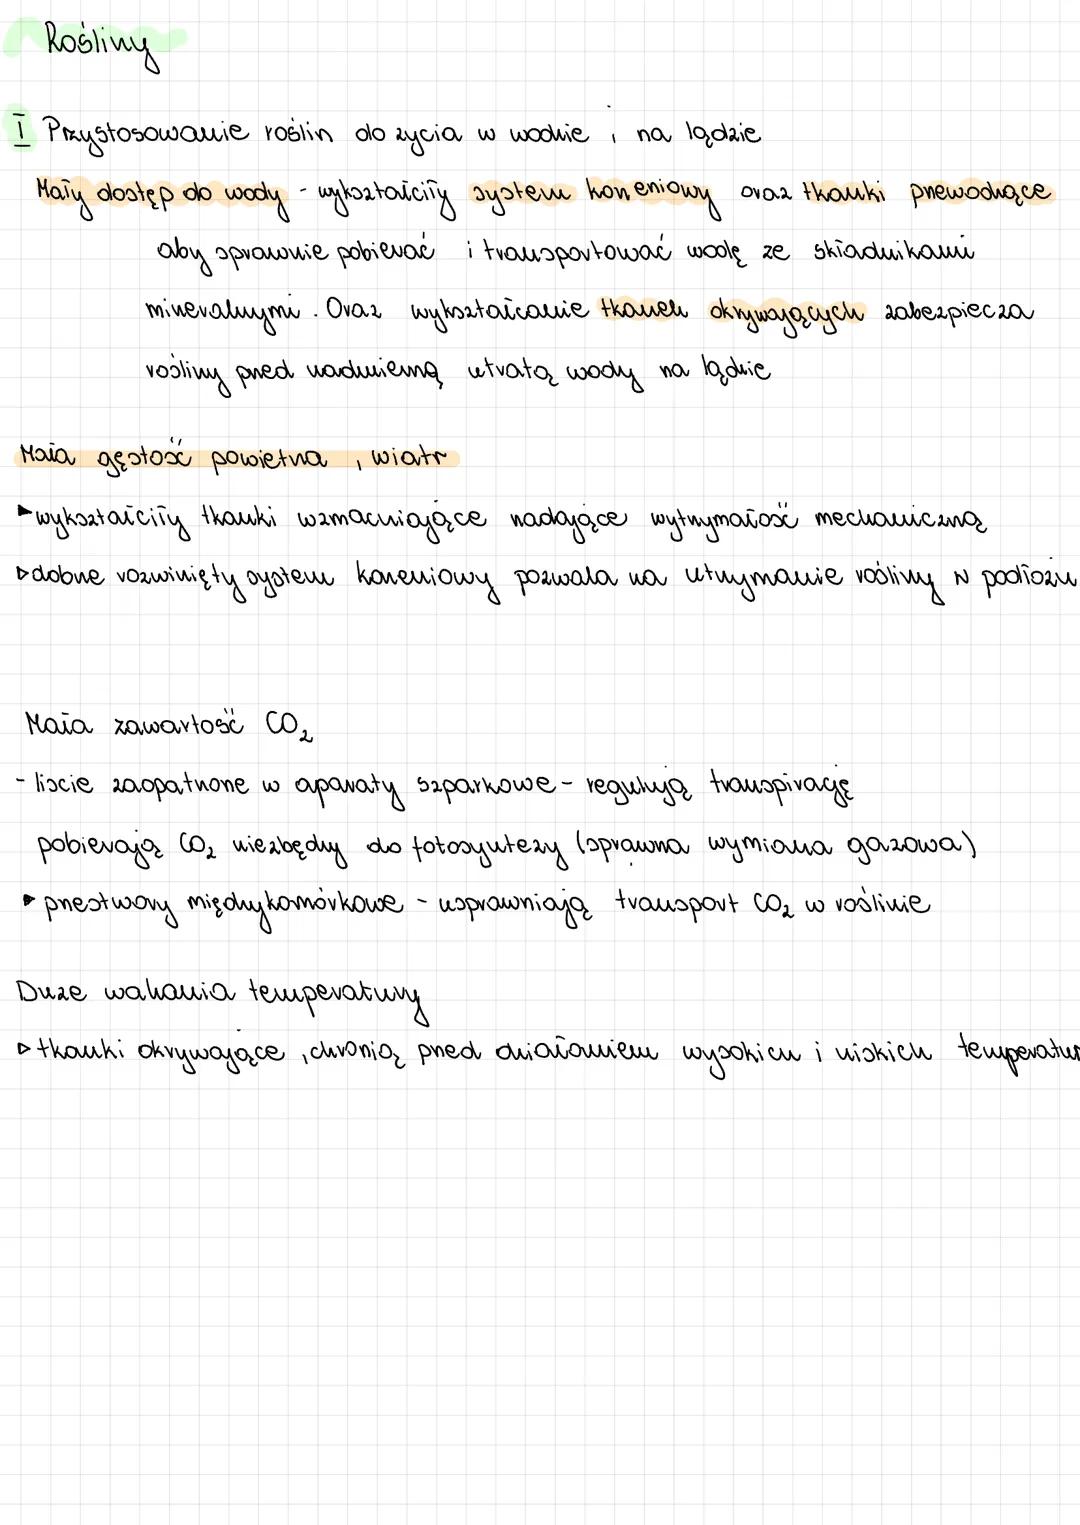 Rośliny
I Przystosowanie roślin do życia w wodzie i na lądzie
Mały dostęp do wody - wykształciły system korzeniowy oraz tkanki przewodzące
aby sprawnie pobierać i transportować wodę ze składnikami
mineralnymi. Oraz wykształcanie tkanek okrywających zabezpiecza
rośliny przed nadmierną utratą wody na lądzie
Mała gęstość powietrza , wiatr
▶ wykształciły tkanki wzmacniające nadające wytrzymałość mechaniczną
▷ dobrze rozwinięty system korzeniowy pozwala na utrzymanie rośliny w podłożu
Mała zawartość CO₂
- liscie zaopatrzone w aparaty szparkowe - regulują transpirację
pobierają CO₂ niezbędny do fotosyntezy (sprawna wymiana gazowa)
▶ przestwory międzykomórkowe - usprawniają transport CO₂ w roślinie
Duże wahania temperatury
▷ tkanki okrywające , chronią przed działaniem wysokich i niskich temperatur